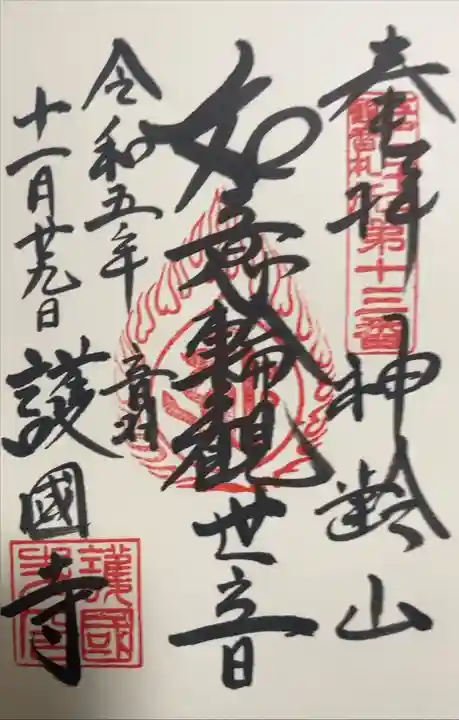 奉拝 神齢山
第十三番
如意輪観世音
令和五年
十一月廿九日
音羽
護國寺